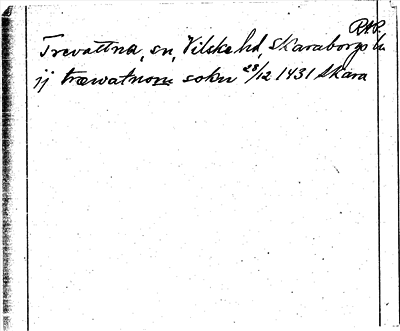 RAP.
Trevattna, sn, Vilske hd, Skaraborgs län
ij træwatnom sokn 28/12 1431 Skara